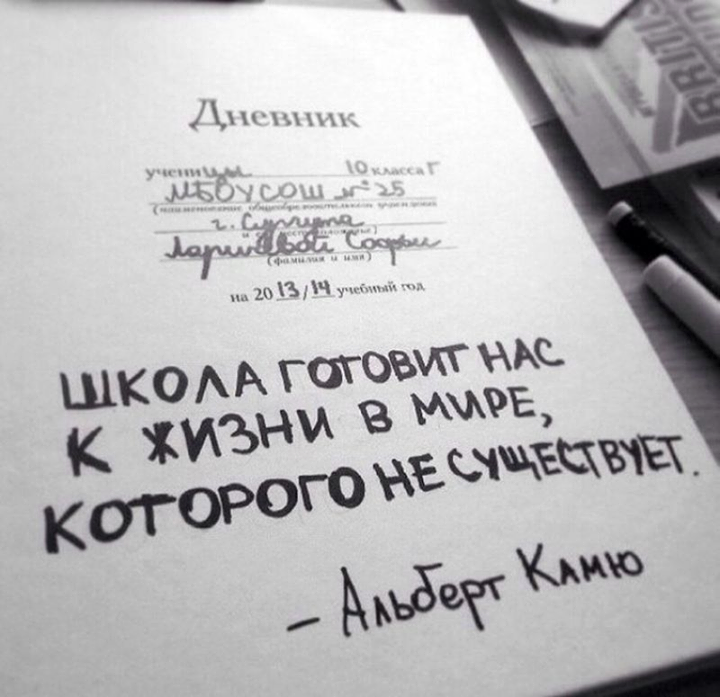 Дневник
ученицы 10 класса Г
МБОУ СОШ №25
(наименование общеобразовательного учреждения
г. Сургута
Ларинцевой Софьи
(фамилия и имя)
на 2013/14 учебный год
ШКОЛА ГОТОВИТ НАС
К ЖИЗНИ В МИРЕ,
КОТОРОГО НЕ СУЩЕСТВУЕТ.
- Альберт Камю